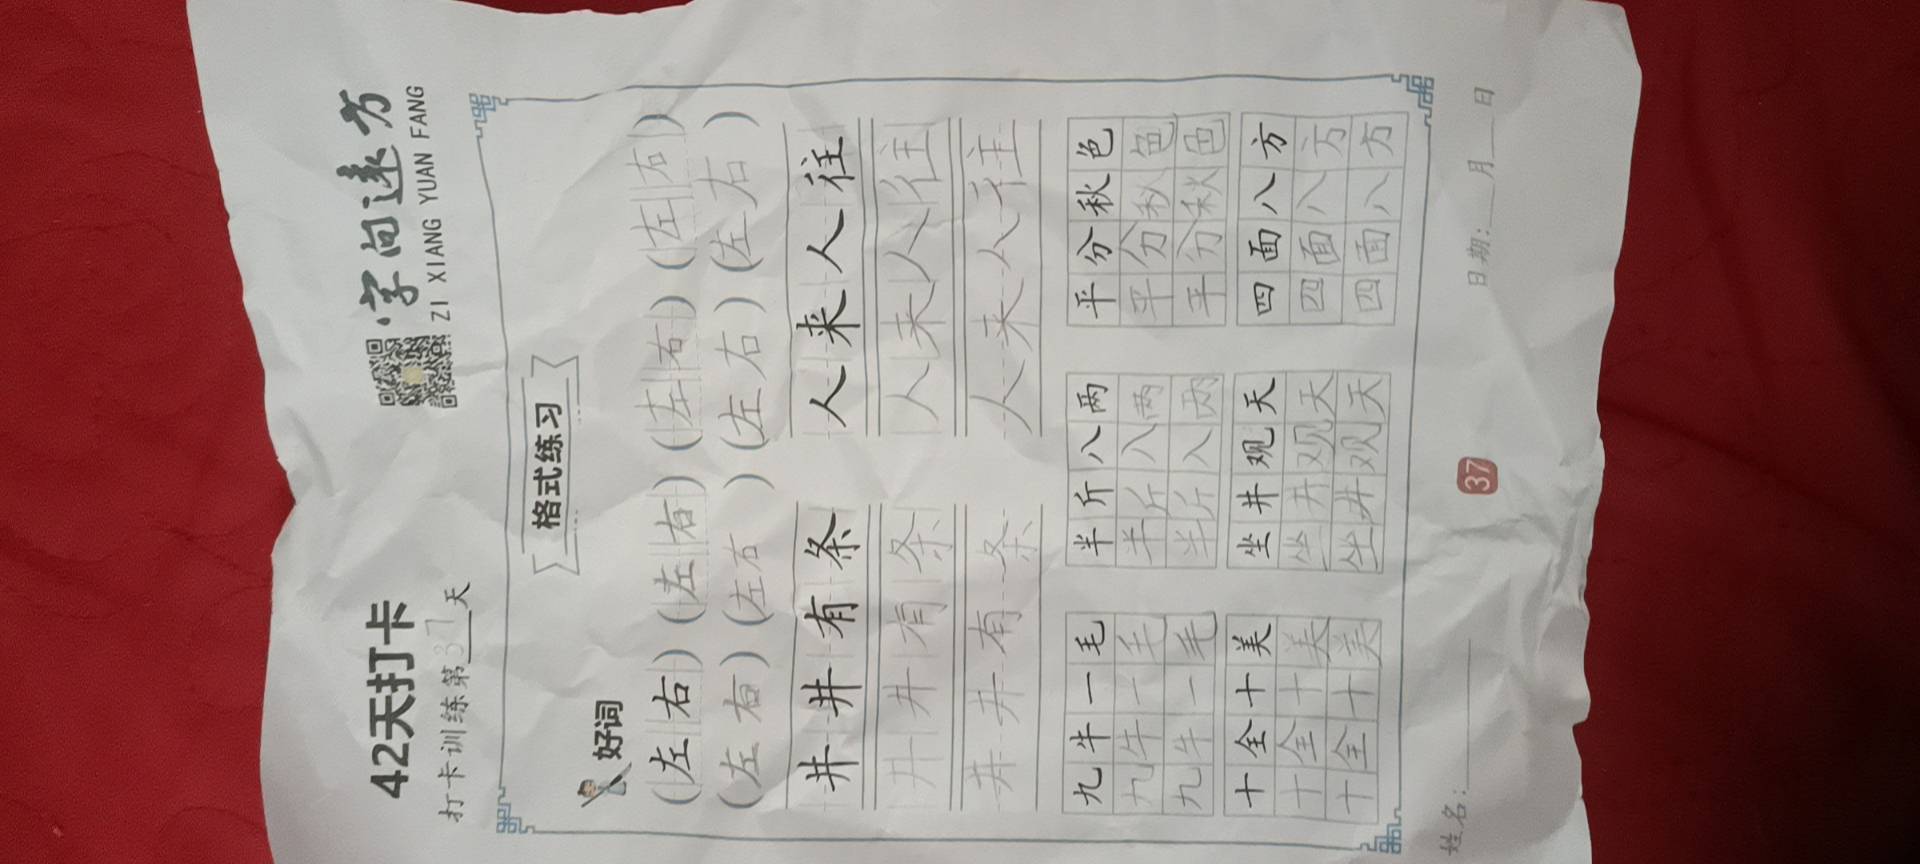 42天打卡 字向远方
打卡训练第37天 ZI XIANG YUAN FANG
格式练习
好词
(左右)(左右)(左右)(左右)
(左右)(左右)(左右)(左右)
井井有条 人来人往
井井有条 人来人往
井井有条 人来人往
九牛一毛 半斤八两 平分秋色
九牛一毛 半斤八两 平分秋色
九牛一毛 半斤八两 平分秋色
十全十美 坐井观天 四面八方
十全十美 坐井观天 四面八方
十全十美 坐井观天 四面八方
姓名: 37 日期: 月 日